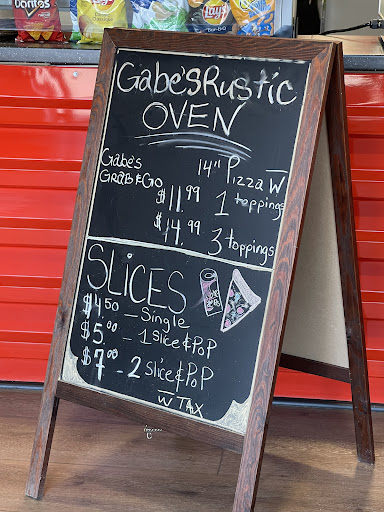 Doritos
Lay's
Lay's
Lay's
Gabe'sRustic
OVEN
Gabe's
GRAB & GO
14" Pizza W
$11.99 1 toppings
$14.99 3 toppings
SLiCES
$4.50 — Single
$5.00 — 1 Slice & PoP
$7.00 - 2 Slice & PoP
— W TAX